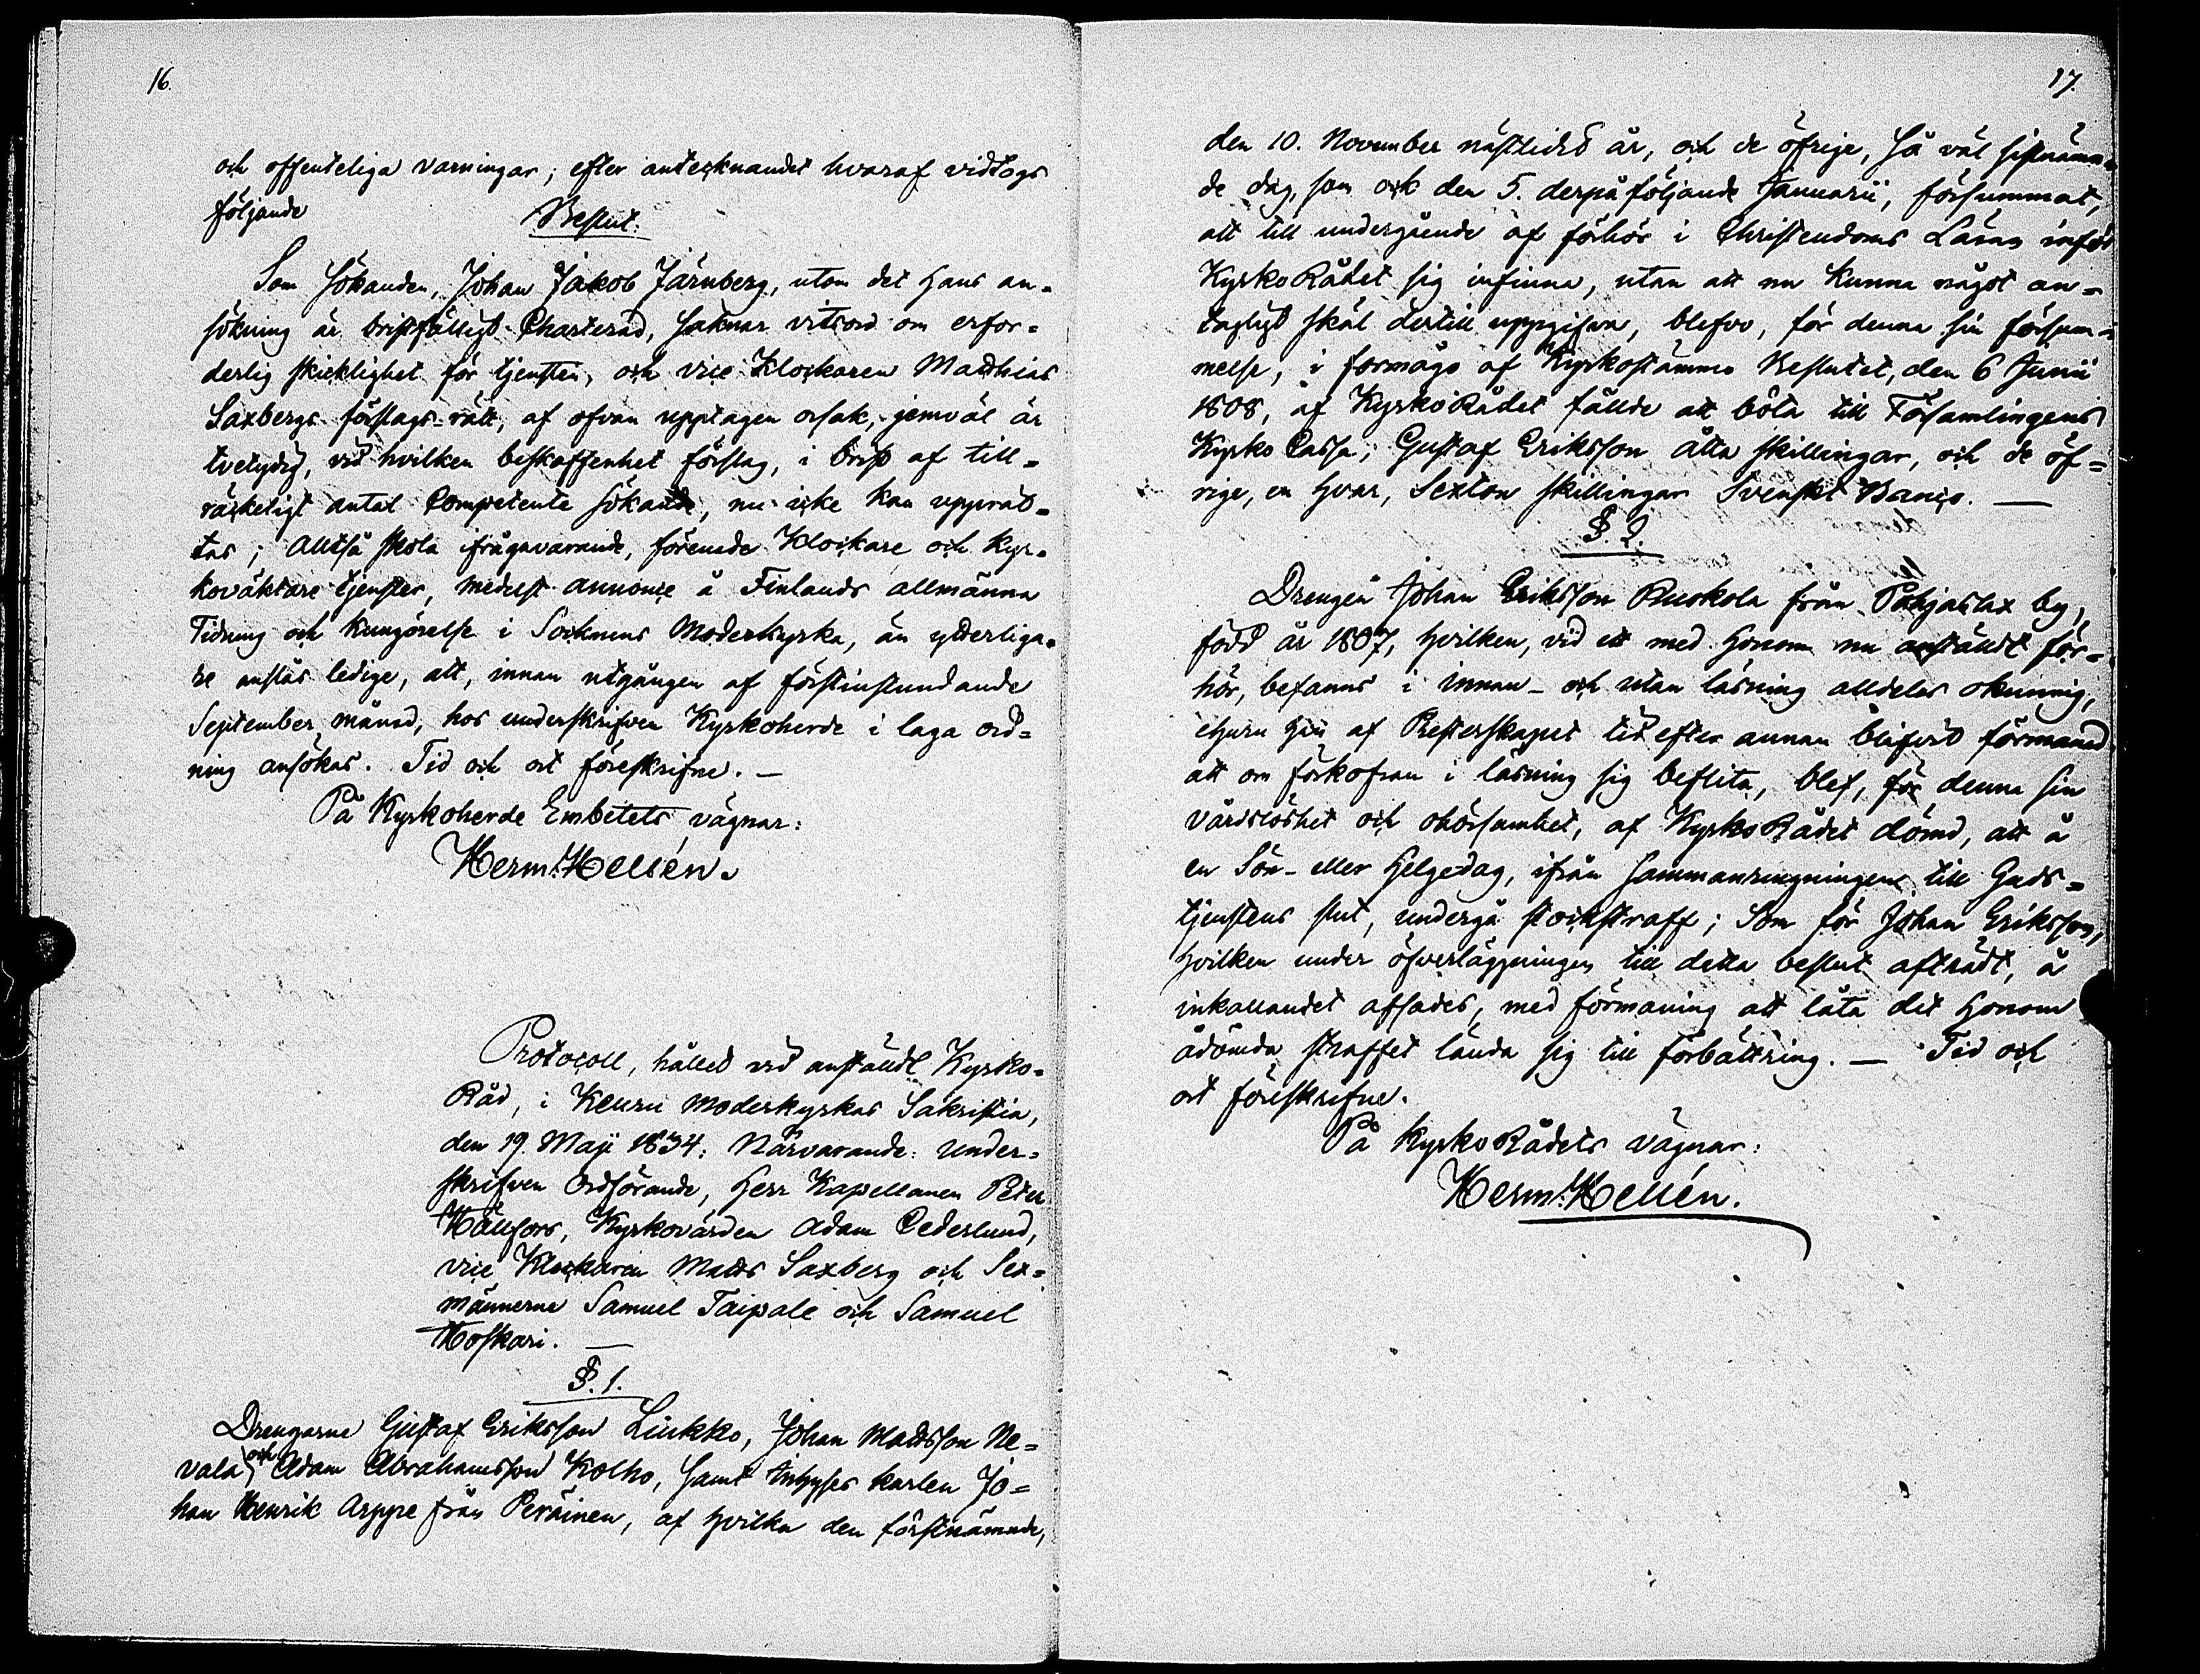 16.
och offenteliga varningar; efter antecknandet hvaraf vidtogs
följande Beslut:
Som Sökanden, Johan Jakob Järnberg, utom det hans an-
sökning är bristfälligt Charterad, saknar vitsord om erfor-
derlig skicklighet för tjensten, och vice Klockaren Matthias
Saxbergs förslags-rätt, af ofvan upptagen orsak, jemväl är
tvetydig, vid hvilken beskaffenhet förslag, i brist af till-
räckeligt antal Competente sökande, nu icke kan upprät-
tas; Alltså skola ifrågavarande, förenade Klockare och Kyr-
koväktare tjenster, medelst annonce å Finlands allmänna
Tidning och kungörelse i Socknens Moderkyrka, än ytterliga-
re anslås ledige, att, innan utgången af förstinstundande
September månad, hos underskrifven Kyrkoherde i laga ord-
ning ansökas. Tid och ort föreskrifne. —
På Kyrkoherde Embetets vägnar:
Herm: Hellén.
Protocoll, hållet vid anstäldt Kyrko-
Råd, i Keuru moderkyrkas Sakristia,
den 19. Maji 1834; Närvarande: under-
skrifven Ordförande, Herr Kapellanen Peter
Hällfors, Kyrkovärden Adam Cederlund,
vice Klockaren Matts Saxberg och Sex-
männerne Samuel Taipale och Samuel
Hoskari. —
§. 1.
Drengarne Gustaf Eriksson Liukko, Johan Mattsson Ne-
vala och Adam Abrahamsson Kolho, samt Inhyses karlen Jo-
han Henrik Arppe från Peräinen, af hvilka den förstnämnde,
17.
den 10. November nästlidit år, och de öfrige, så väl sistnämn-
de dag, som ock den 5. derpåföljande Januarii, försummat,
att till undergående af förhör i Christendoms Läran inför
KyrkoRådet sig infinna, utan att nu kunna något an-
tagligt skäl dertill uppgifva, blefvo, för denna sin försum-
melse, i förmågo af Kyrkostämmo Beslutet, den 6 Junii
1808, af KyrkoRådet fällde att böta till Församlingens
Kyrko Cassa; Gustaf Eriksson åtta skillingar, och de öf-
rige, en hvar, Sexton skillingar Svenskt Banco. —
§. 2.
Drengen Johan Eriksson Ruokola från Pohjaslax by,
född år 1807, hvilken, vid ett med honom nu anstäldt för-
hör, befanns i innan- och utan läsning alldeles okunnig,
ehuru han af Presterskapet tid efter annan blifvit förmanad
att om förkofran i läsning sig beflita, blef, för denna sin
vårdslöshet och ohörsamhet, af KyrkoRådet dömd, att å
en Sön- eller Helgedag, ifrån sammanringningen till Guds-
tjenstens slut, undergå stockstraff; Som för Johan Eriksson,
hvilken under öfverläggningen till detta beslut afträdt, å
inkallandet afsades, med förmaning att låta det honom
ådömda straffet lända sig till förbättring. — Tid och
ort föreskrifne.
På KyrkoRådets vägnar:
Herm: Hellén.